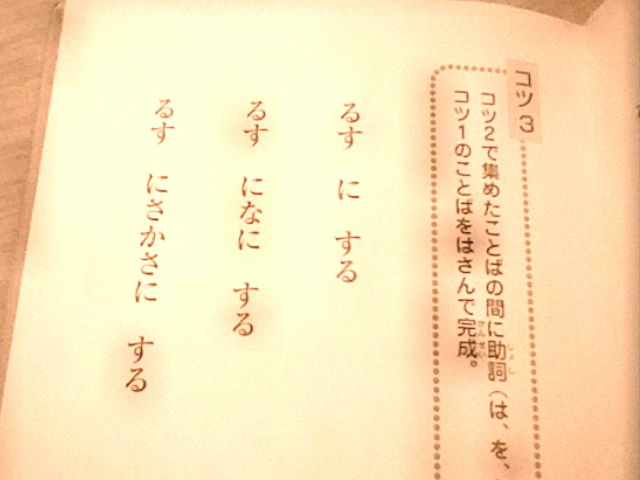 コツ3
コツ2で集めたことばの間に助詞(は、を、
コツ1のことばをはさんで完成。
るす に する
るす になに する
るす にさかさに する